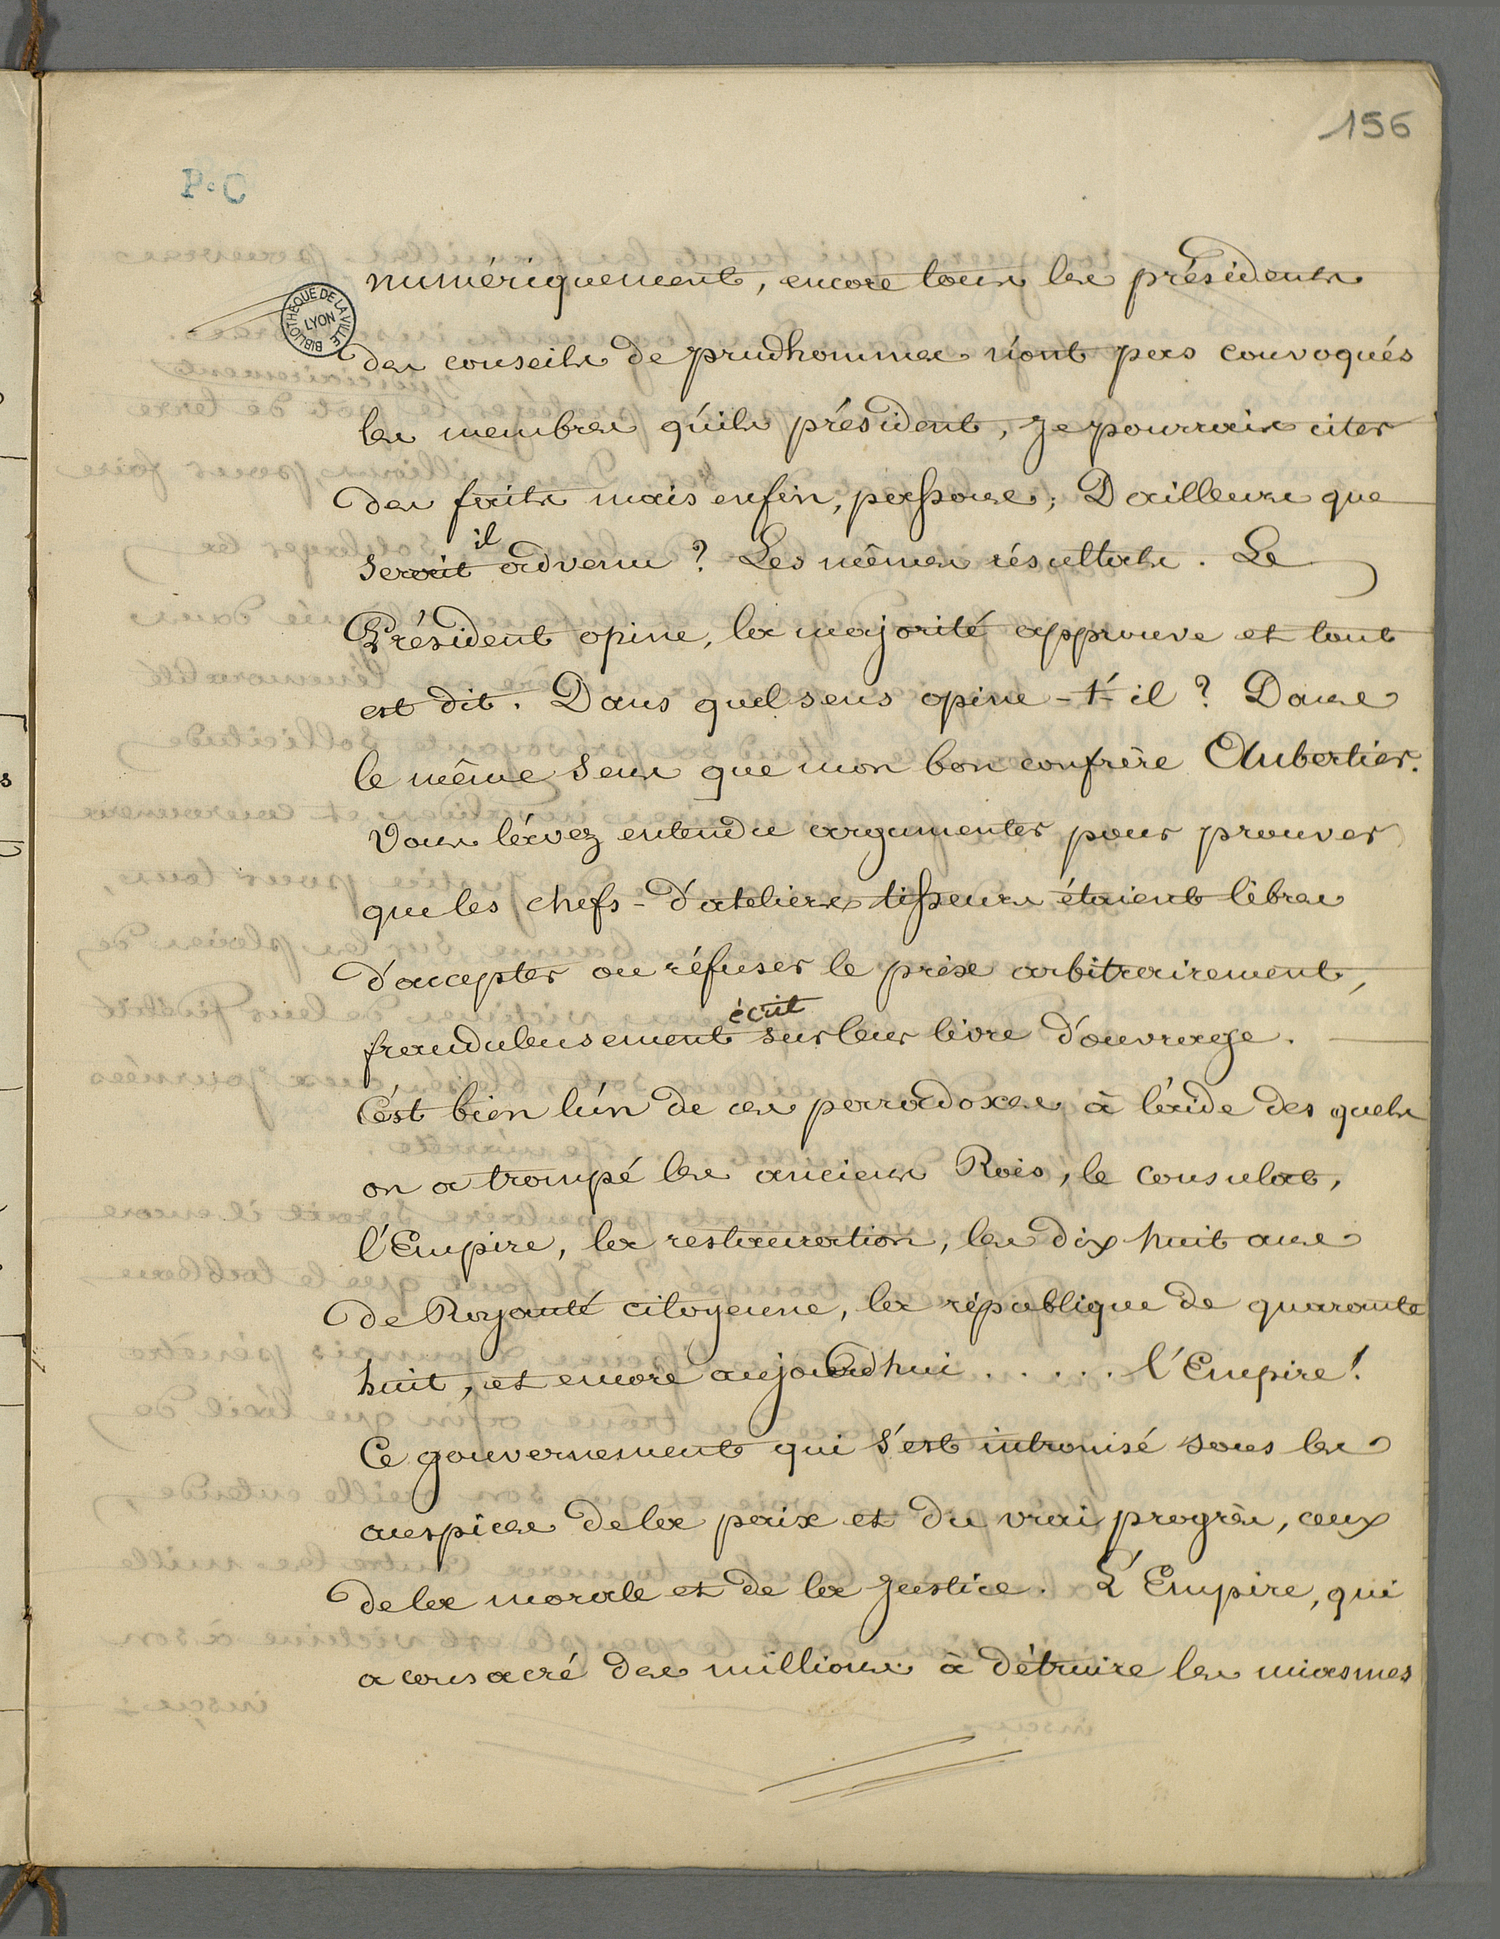 156
P. C
BIBLIOTHÈQUE DE LA VILLE LYON
numériquement, encore tous les présidents
des conseils de prudhommes n'ont pas convoqués
les membres qu'ils président, je pourrais citer
des faits mais enfin, passons; D'ailleurs que
serait il advenu ? Les mêmes résultats. Le
Président opine, la majorité approuve et tout
est dit. Dans quel sens opine-t-il ? Dans
le même sens que mon bon confrère Aubertier.
Vous l'avez entendu argumenter pour prouver
que les chefs-d'ateliers tisseurs étaient libres
d'accepter ou réfuser le prix arbitrairement,
frauduleusement écrit sur leur livre d'ouvrage.
C'est bien l'un de ces parradoxes à l'aide des quels
on a trompé les anciens Rois, le consulat,
l'Empire, la restauration, les dix huit ans
de Royauté citoyenne, la république de quarante
huit, et encore aujourd'hui . . . . . l'Empire !
Ce gouvernement qui s'est intronisé sous les
auspices de la paix et du vrai progrès, ceux
de la morale et de la justice. L'Empire, qui
a consacré des millions à détruire les miasmes